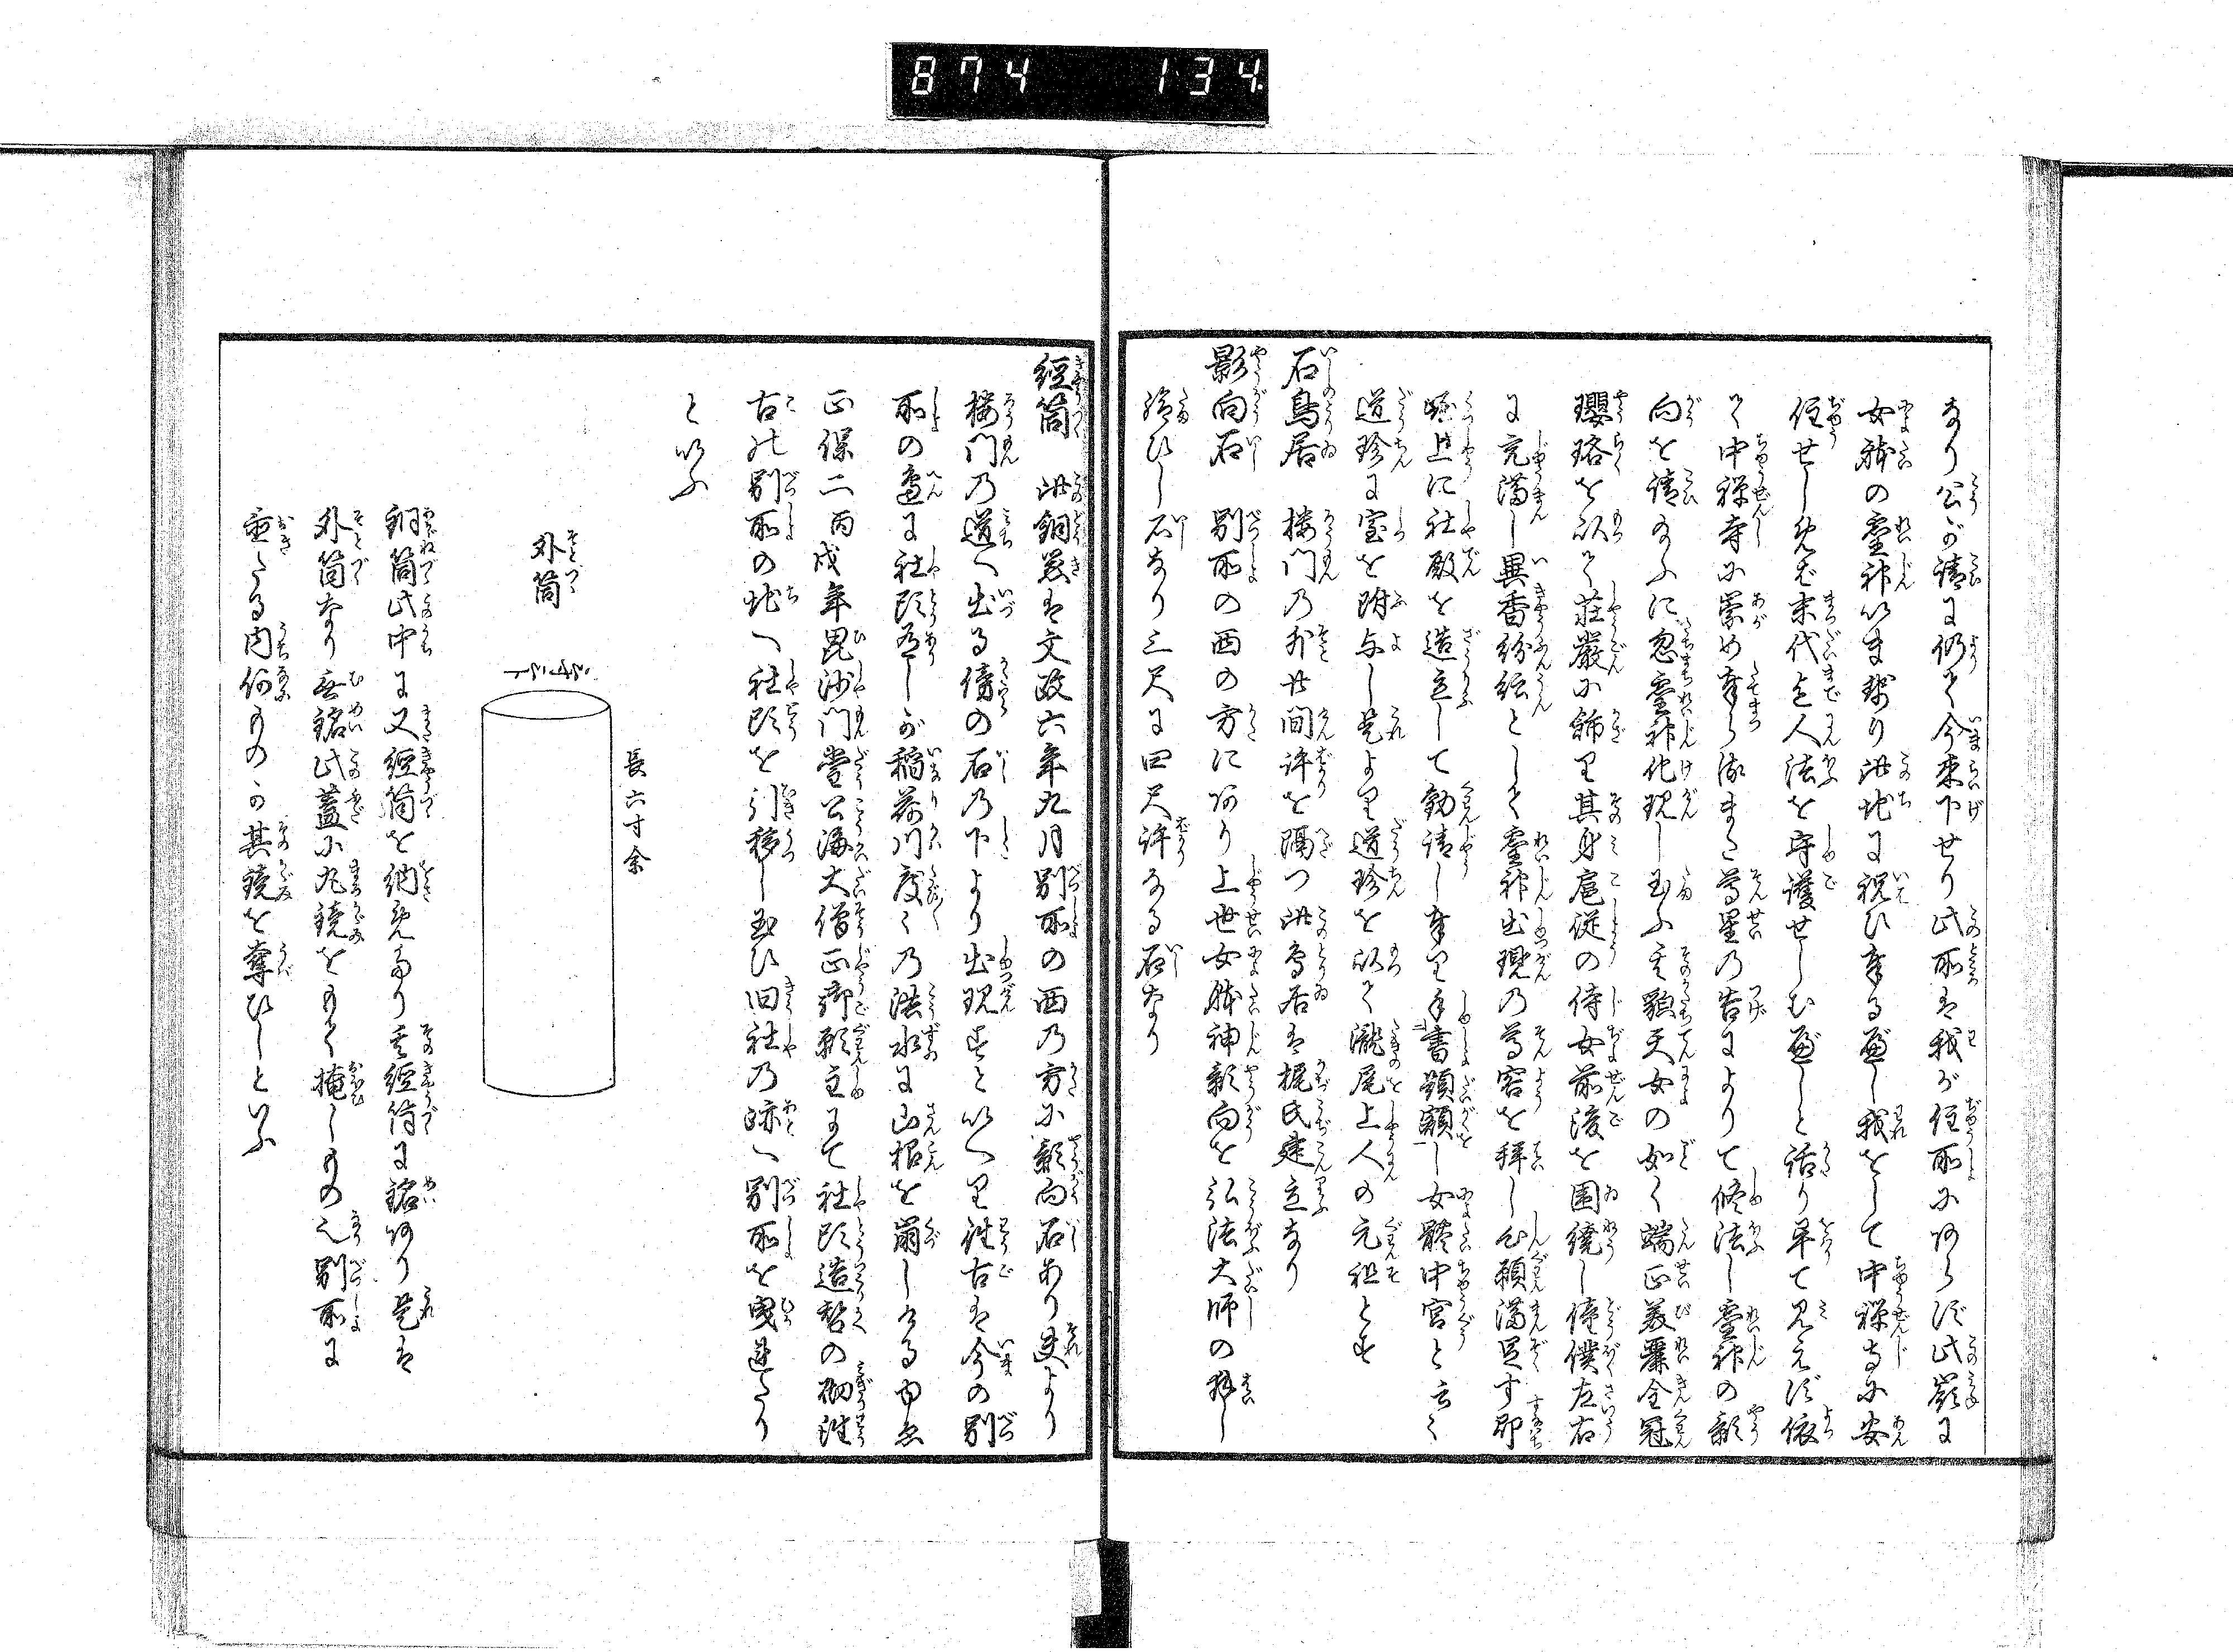 874 134
なり公が請に仍て今来下せり此所は我が住所にあらず此嶺に
女躰の霊神います我り此地に祝ひ奉るべし我をして中禅寺に安
住せしめば末代迄人法を守護せしむべしと話り畢て見えず依
て中禅寺に崇め奉らる又尊星の告によりて修法し霊神の影
向を請ふに忽霊神化現し玉ふ其貌天女の如く端正美麗金冠
瓔珞を以て荘厳に飾り其身扈従の侍女前後を囲繞し僮僕左右
に充満し異香紛紜として霊神出現の尊容を拝し心願満足す即
崛上に社殿を造立して勧請し奉り手書題額し女體中宮と云々
道珍に室を附与し是より道珍を以て瀧尾上人の元祖とす
石鳥居 楼門の外廿間許を隔つ此鳥居は梶氏建立なり
影向石 別所の西の方にあり上世女躰神影向を弘法大師の拝し
給ひし石なり三尺に四尺許なる石なり
経筒 此銅器は文政六年九月別所の西の方に影向石あり夫より
楼門の道へ出る傍の石の下より出現すといへり往古は今の別
所の邊に社頭有しが稲荷川度々の洪水に山根を崩しけるゆゑ
正保二丙戌年毘沙門堂公海大僧正御願主にて社頭造替の砌往
古の別所の地へ社頭を引移し玉ひ旧社の跡へ別所を曳建たり
といふ
外筒
長六寸余
銅筒此中に又経筒を納めたり其経筒に銘あり是は
外筒なり無銘此蓋に丸鏡をもて掩しもの之別所に
置たる内何ものゝか其鏡を奪ひしといふ